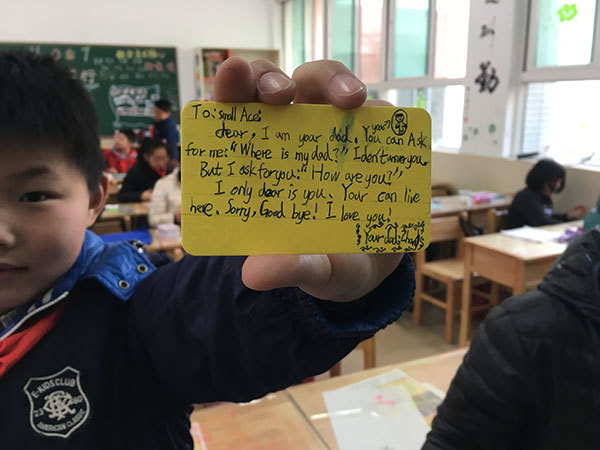 To: small Ace:
dear, I am your dad. You can Ask
for me: "Where is my dad?" I den't anwer you.
But I ask for you: "How are you?"
I only dear is you. Your can live
here. Sorry, Good bye! I love you!
Your dad:
E-KIDS CLUB
AMERICAN CLASSIC
勤